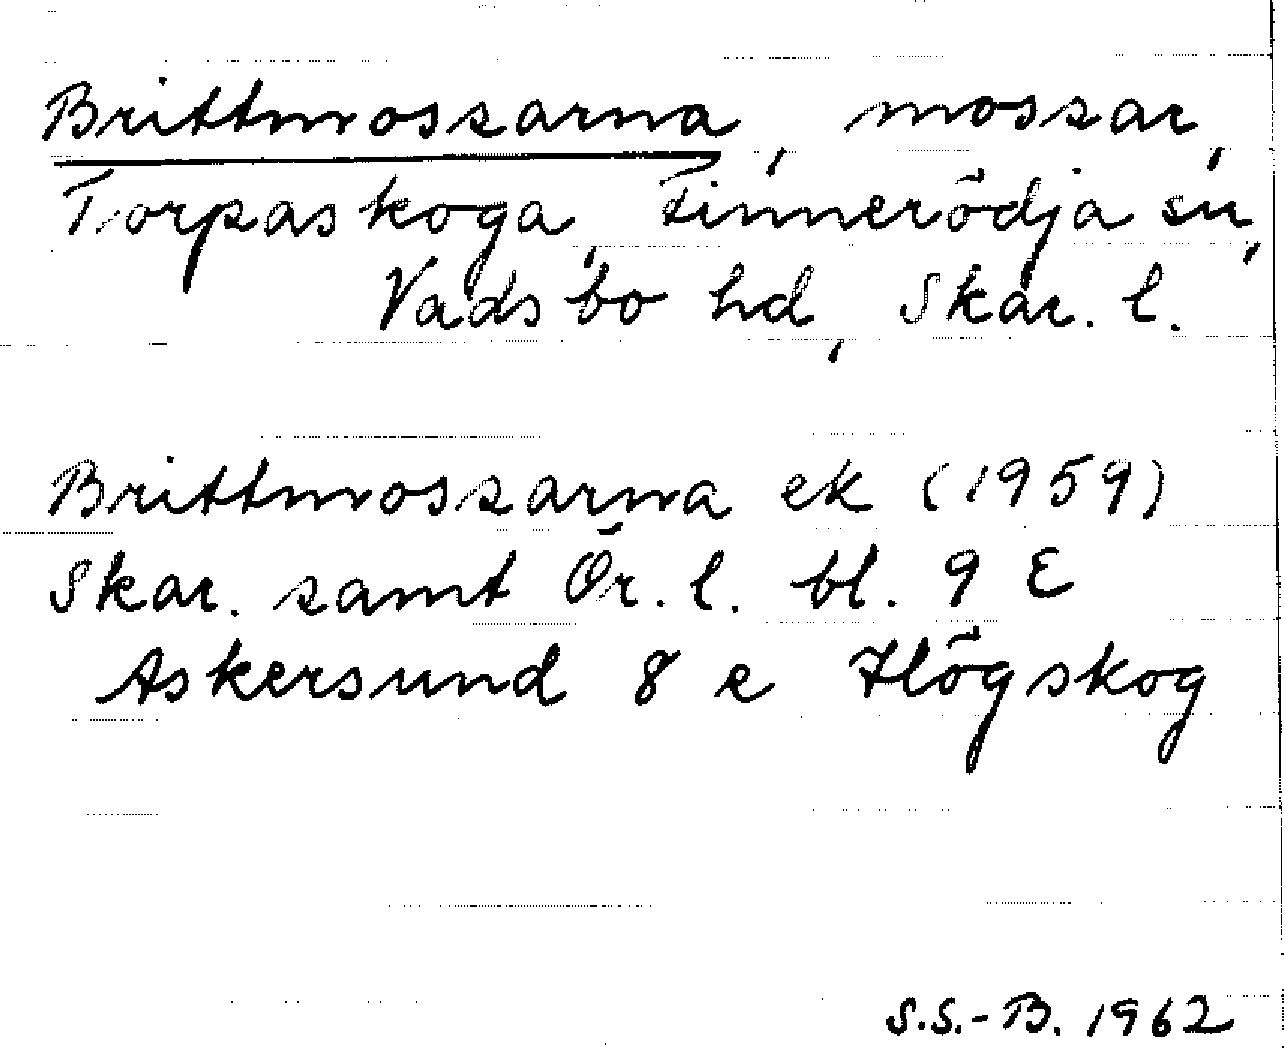 Brittmossarna, mossar,
Torpaskoga, Finnerödja sn,
Vadsbo hd, Skar. l.
Brittmossarna ek (1959)
Skar. samt Ör. l. bl. 9 E
Askersund 8 e Högskog
S.S.-B. 1962